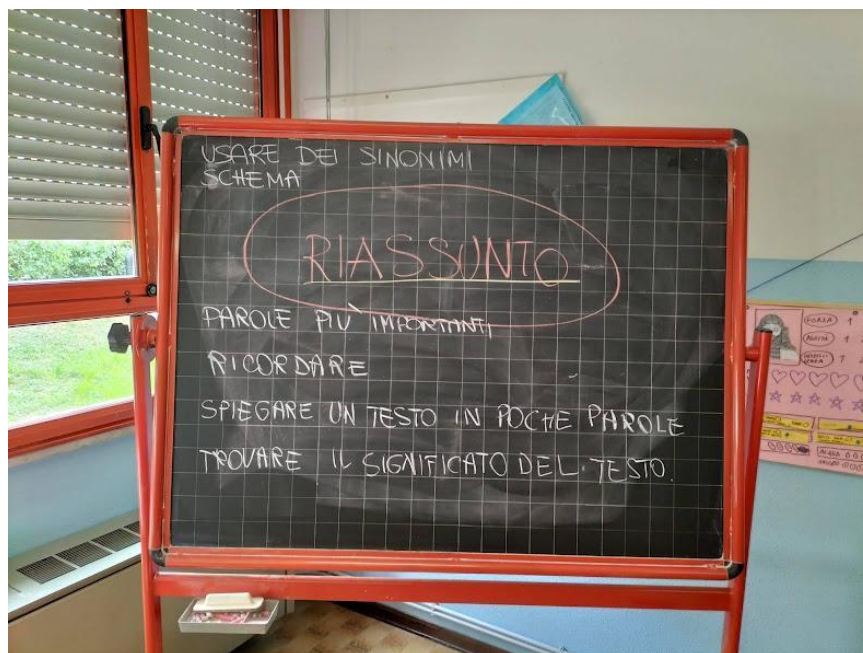 USARE DEI SINONIMI
SCHEMA
RIASSUNTO
PAROLE PIÙ IMPORTANTI
RICORDARE
SPIEGARE UN TESTO IN POCHE PAROLE
TROVARE IL SIGNIFICATO DEL TESTO.
FORZA 1
AGILITÀ 1